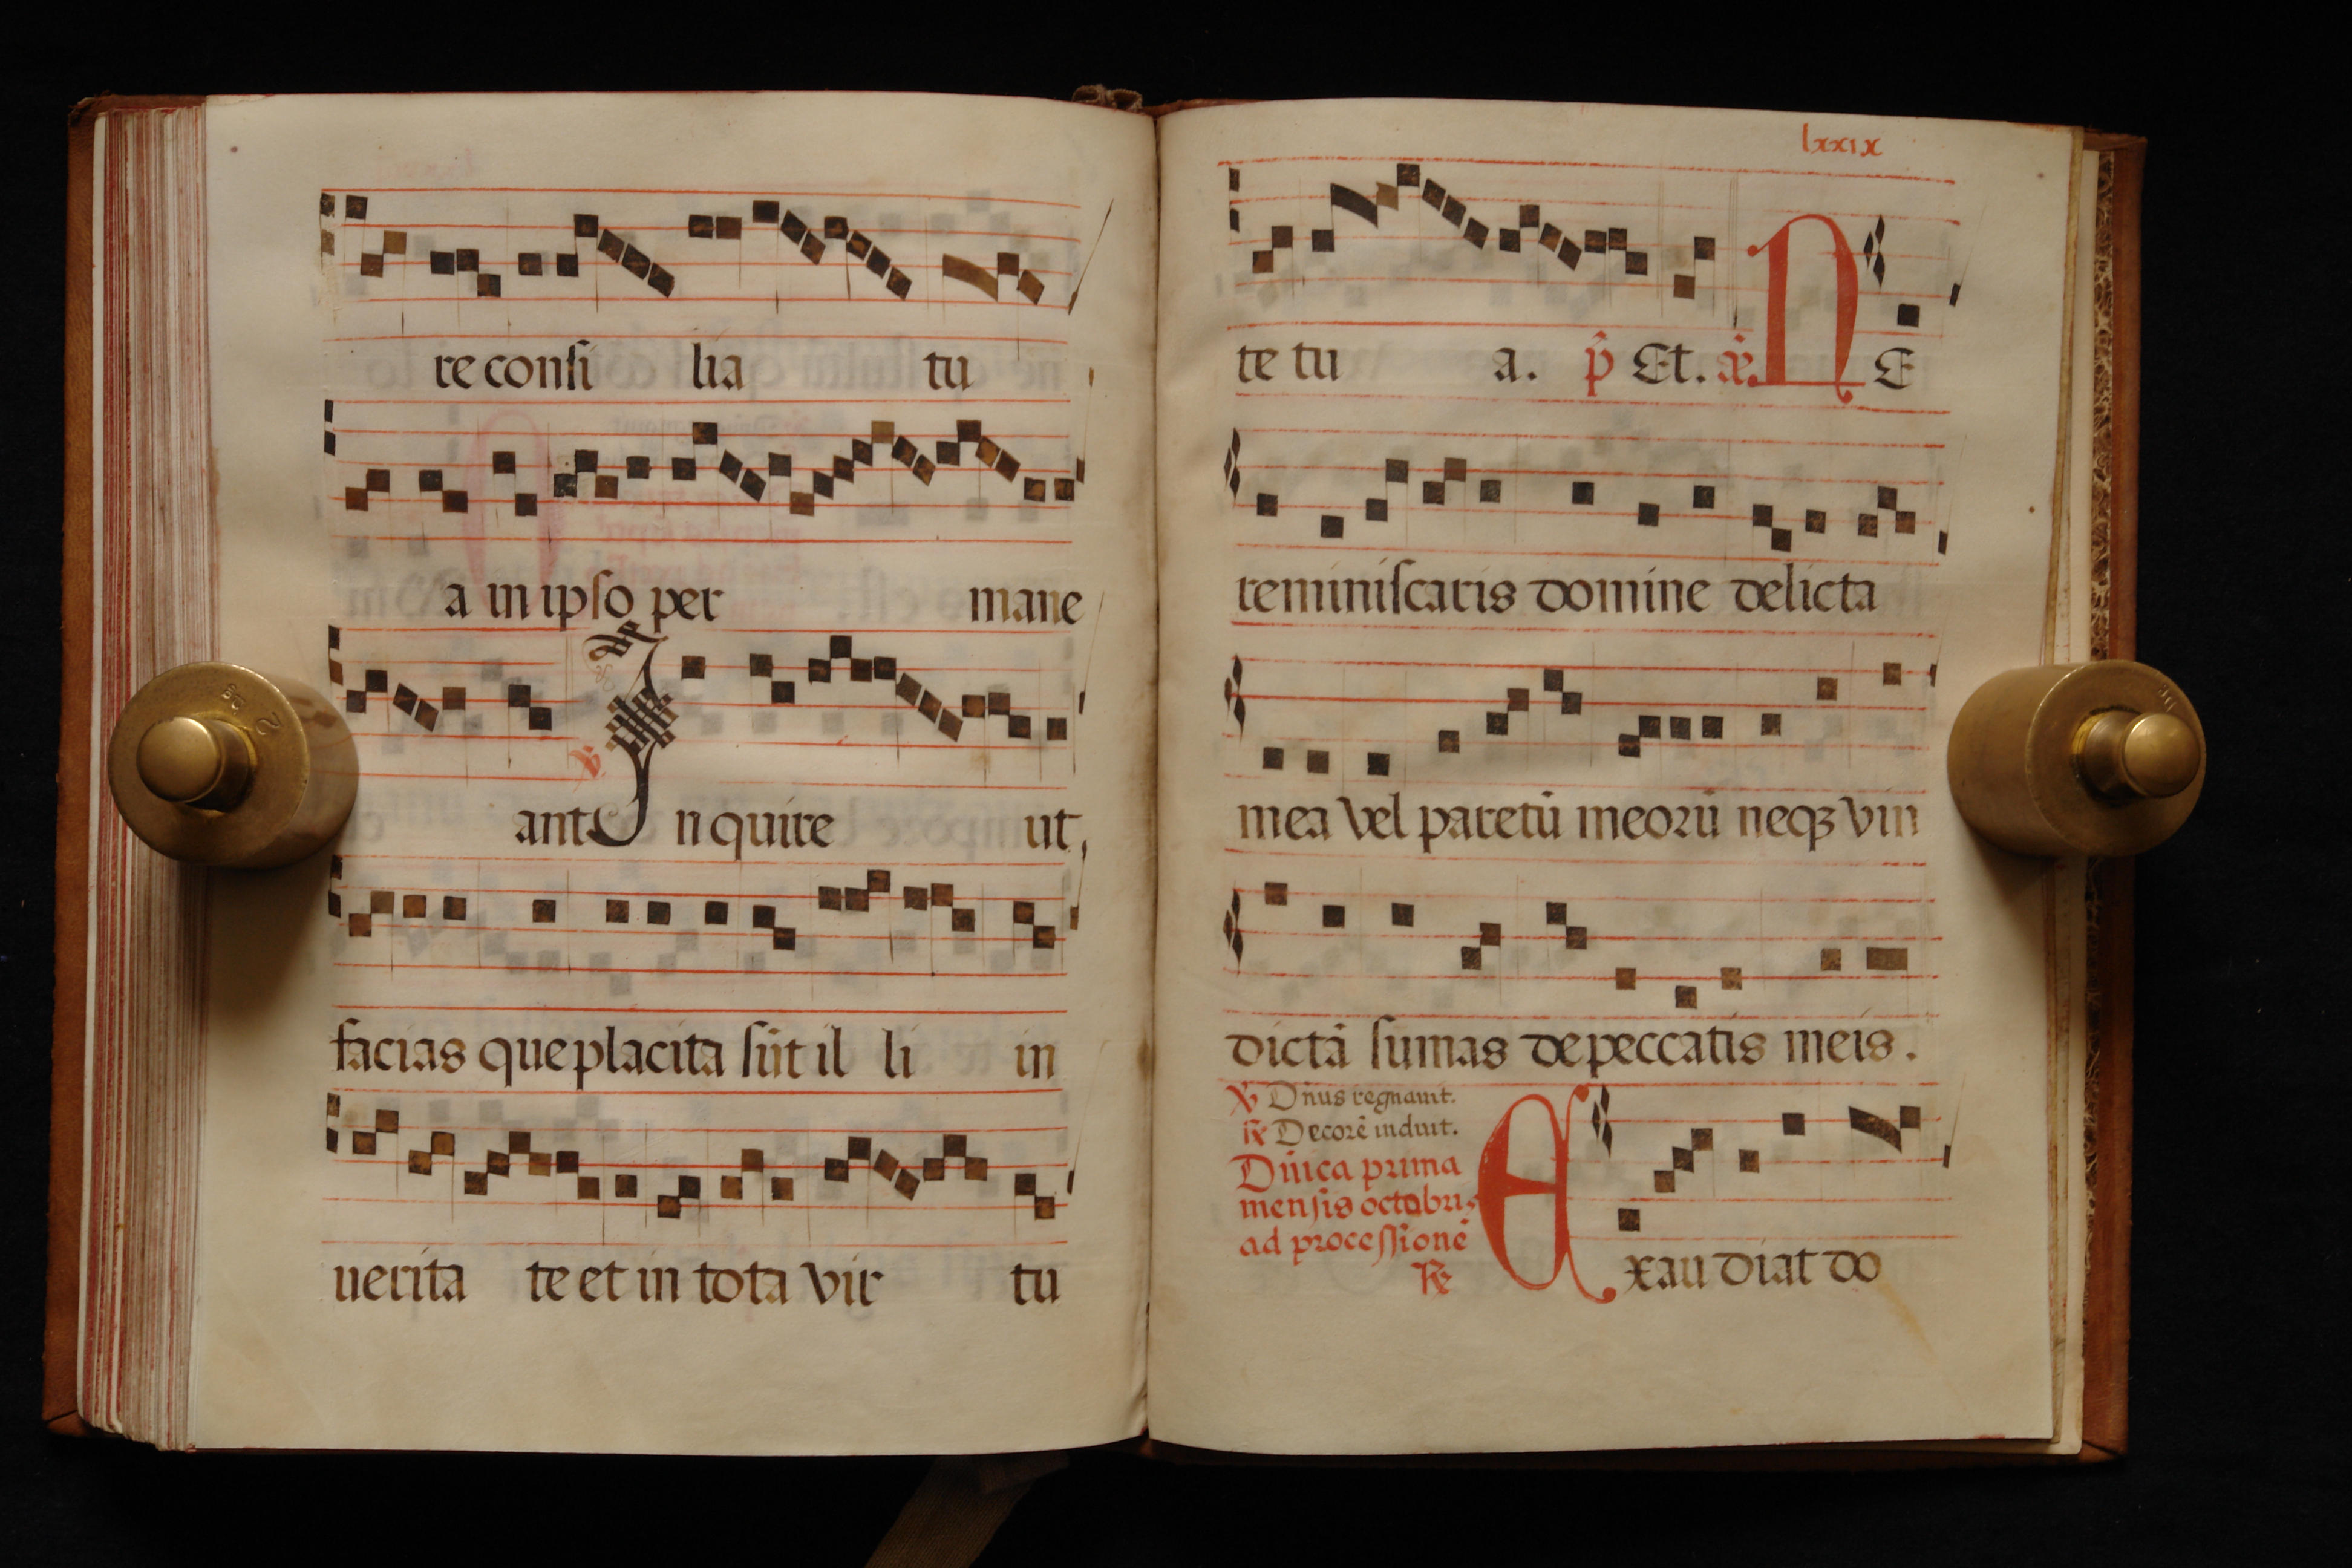 re consi lia tu
a in ipso per mane
ant ℣ In quire ut
facias que placita sūt il li in
uerita te et in tota vir tu
lxxix
te tu a. p̄ Et. añ. NE
reminiscaris domine delicta
mea vel paretū meorū neqꝫ vin
dictā sumas de peccatis meis.
℣ Dñus regnauit.
℟ Decorē induit.
Dñica prima
mensis octobris
ad processionē
℟ Exaudiat do